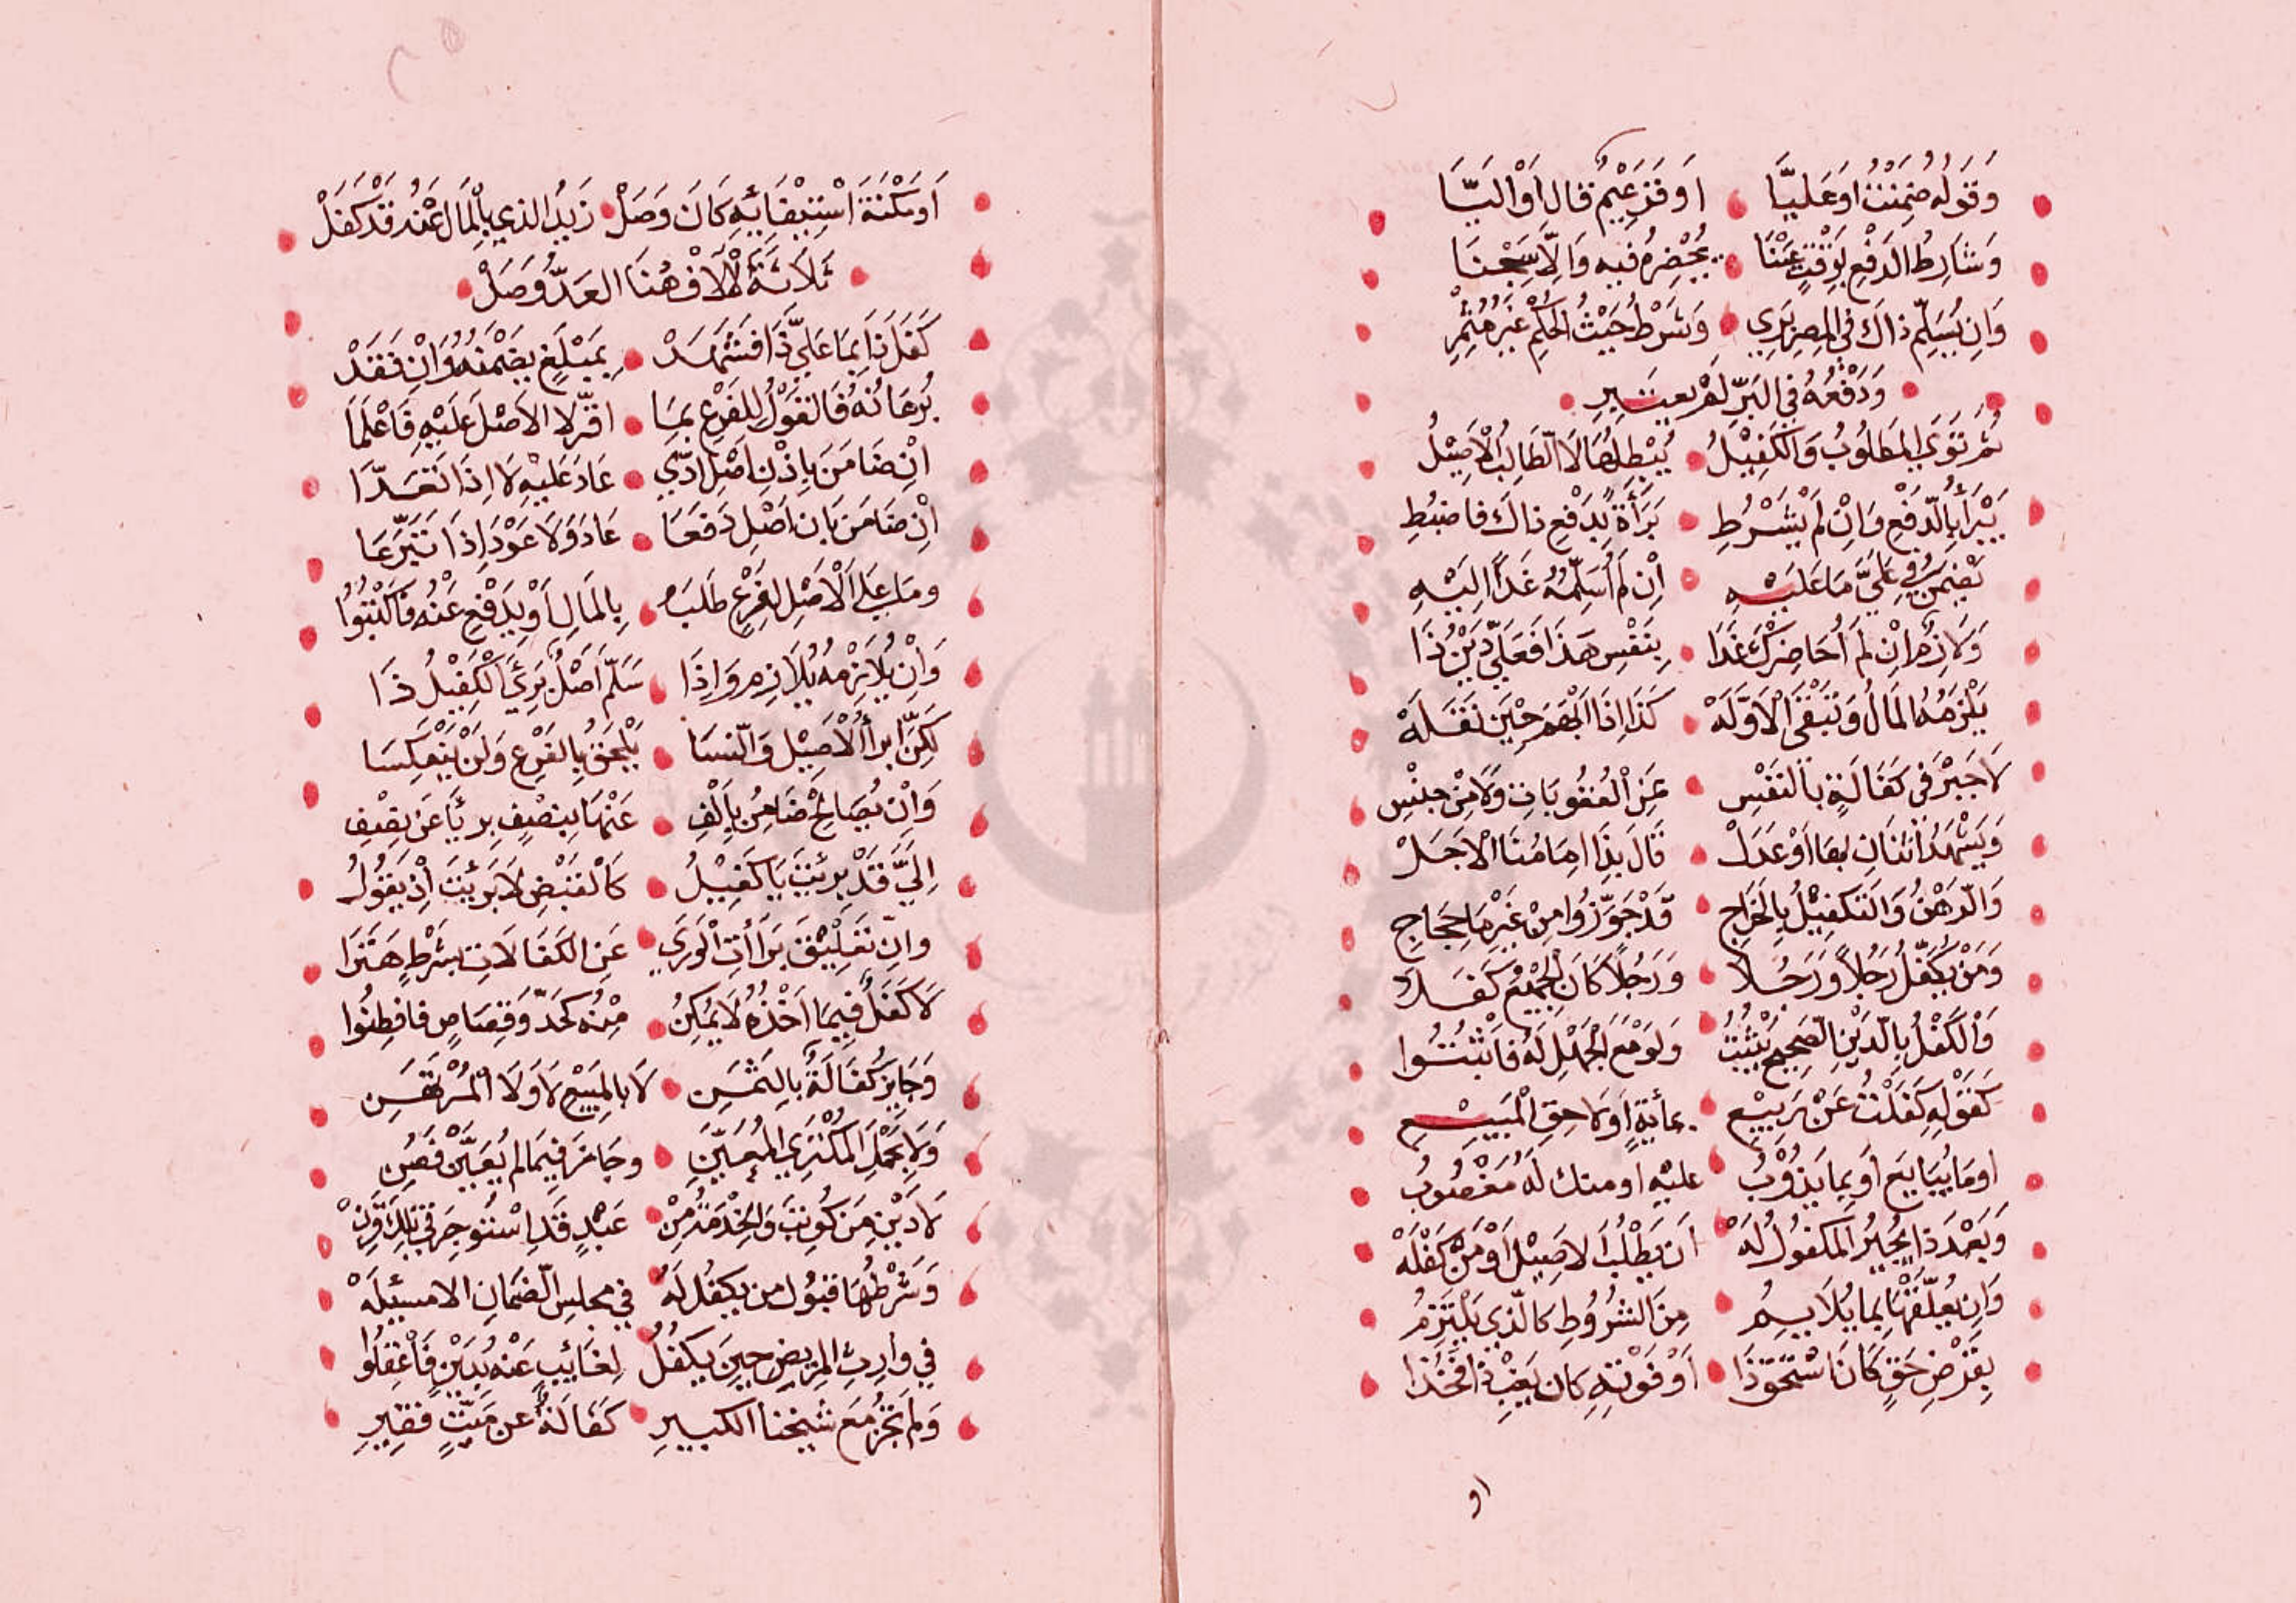 وَقَوْلُهُ ضَمِنْتُ اَوْ عَلَيَّا اَوْ قَزَعِيْمٌ قال اَوْ اِلَيَّا
وَشَارِطُ الدَّفْعِ بِوَقْتٍ عَيَّنَا يُحْضِرُهُ فِيهِ وَاِلَّا سُجِنَا
وَاِن يُسَلِّمْ ذاكَ فِى المِصرِ بَرِي وَشَرْطُ حَيْثُ الحُكْمِ غَيْرُ مُثْمِرِ
وَدَفْعُهُ فِى البَرِّ لَمْ يعتبرِ
ثُمَّ تَوَى المَطلُوبُ وَالكَفِيْلُ يُبْطِلُهَا لَا الطَّالِبُ الْاَصِيْلُ
يَبْرَأُ بِالدَّفْعِ وَاِنْ لَمْ يَشْرُطِ بَرَأَةً بِدَفْعِ ذاكَ فاضبُطِ
تَضْمَنُ فِي عَلَيَّ مَا عَلَيْهِ اِن لَمْ اُسَلِّمْهُ غَدًا اِلَيْهِ
وَلَازِمٌ اِنْ لَمْ اُحَاضِرْكَ غَدَا بِنَفْسِ هَذَا فَعَلَيَّ دَيْنُ ذَا
يَلْزَمُهُ المَالُ وَتَبْقَى الْاَوَّلَهْ كَذَا اِذَا اَبْهَمَ حِيْنَ نَقَلَهْ
لَا جَبْرَ فِي كَفَالَةٍ بِالنَّفْسِ عَنِ الْعُقُوبَاتِ وَلَا مِنْ حَبْسِ
وَيَشْهَدُ اثْنَانِ بِهَا اَوْ عَدَلْ قَالَ بِذَا اِمَامُنَا الْاَجَلْ
وَالرَّهْنُ وَالتَّكفِيْلُ بِالخَرَاجِ قَدْ جَوَّزُوا مِنْ غَيْرِ مَا حِجَاجِ
وَمَنْ يُكَفِّلْ رَجُلًا وَرَجُلَا وَرَجُلًا كَانَ الجَمِيْعُ كُفَلَا
وَالْكَفْلُ بِالدَّيْنِ الصَّحِيحِ يَثْبُتُ وَلَوْ مَعَ الْجَهْلِ لَهُ فَاَثْبَتُوا
كَقَوْلِهِ كَفَلْتُ عَنْ رَبِيْعِ بمائَةٍ اَوْ لَاحِقِ الْمَبِيْعِ
اَو مَا يُبَايِعْ اَو بِمَا يَذُوْبُ عليْهِ او منك لَهُ مَغْصُوبُ
وَبَعْدَ ذَا يُجيْزُ المَكفُولُ لَهْ اَن يَطْلُبَ الاَصِيْلَ اَوْ مَنْ كَفَلَهْ
وَاِن يُعَلِّقْهَا بِما يُلَايِمُ مِنَ الشُّرُوطِ كالَّذِى يَلْتَزِمُ
بِقَرْضِ حَقٍّ كَانَ اَسْتَحْوَذَا اَوْ فَوْتِهِ كان يَغِبْ ذا فَخُذَا
او
اَوْ مُكْنَةَ اسْتِيْفَائِهِ كَانَ وَصَلْ زَيدُ الذي بِالْمَالِ عَنْهُ قَدْ كَفَلْ
ثَلَاثَةُ الْآلَافِ هُنَا العَدُّ وَصَلْ
كَفَلَ ذَا بِمَا عَلَيَّ ذَا فَشَهَدْ بِمَبْلَغٍ يَضْمَنُهُ وَاِنْ فَقَدْ
بُرهَانُهُ فَالقَوْلُ لِلفَرْعِ بِمَا اقَرَّ لا الاَصْلِ عَلَيْهِ فَاعْلَمَا
اِنْ ضَامِنٌ بِاِذْنِ اَصْلٍ ادّى عَادَ عَلَيْهِ لَا اِذَا تَعَدَّا
اِنْ ضَامِنٌ بِاِذْنِ اَصْلٍ دَفَعَا عَادَ وَلَا عَوْدَ اِذَا تَبَرَّعَا
وَمَا عَلَى الْاَصْلِ لِفَرْعٍ طَلَبُ بِالمَالِ اَوْ يَدْفَعْ عَنْهُ فَاكْتُبُوا
وَاِنْ يُلَازِمْهُ يُلَازِم وَاِذَا سَلَّمَ اَصْلٌ بَرِئَ الْكَفِيْلُ ذَا
لَكِنَّ اِبرَأَ الْاَصِيْلِ وَالنَّسَا يَلْحَقُ بِالفَرْعِ وَلَنْ يَنْعَكِسَا
وَاِنْ يُصَالِحْ ضَامِنٌ بِاَلْفِ عَنْهَا بِنِصْفٍ بَرِئَا عَنْ نِصْفِ
اِلَيَّ قَدْ بَرِئْتَ يَا كَفِيْلُ كَالْقَبْضِ لَا بَرِئْتَ اِذْ يَقُولُ
وَاِنَّ تَعْلِيْقَ بَرَاأَتِ الْوَرَى عَنِ الكَفَالَاتِ بِشَرْطٍ هَتَرَا
لَا كَفْلُ فِيمَا اَخْذُهُ لَا يُمْكِنُ مِنْهُ كَحَدٍّ وَقِصَاصٍ فافطِنُوا
وَجَايِزٌ كَفَالَةٌ بالثَّمَنِ لَا بالمَبِيْعِ لَا وَلَا المُرْتَهَنِ
وَلَا بِحَمْلِ المُكْتَرَى المُعَيَّنِ وجَازَ فِيمَا لم يُعَيَّنْ فَصُنِ
لَا دَيْنِ مَن كُوتِبَ وَالخِدْمَةُ مِنْ عَبْدٍ قَدِ اسْتُوجِرَ فِي تِلكَ
وَشَرْطُهَا قَبُول من يكفُلُ لَهُ في مجلسِ الضَّمَانِ الا مسئلَهْ
فِي وارِثِ المَريضِ حِيْنَ يَكفُلُ لِغَائِبٍ عَنْهُ بِدَيْنٍ فَاعْقِلُوا
وَلَم تَجُزْ مَعَ شَيخنا الكبيرِ كَفَالَةٌ عن مَيِّتٍ فَقِيرِ